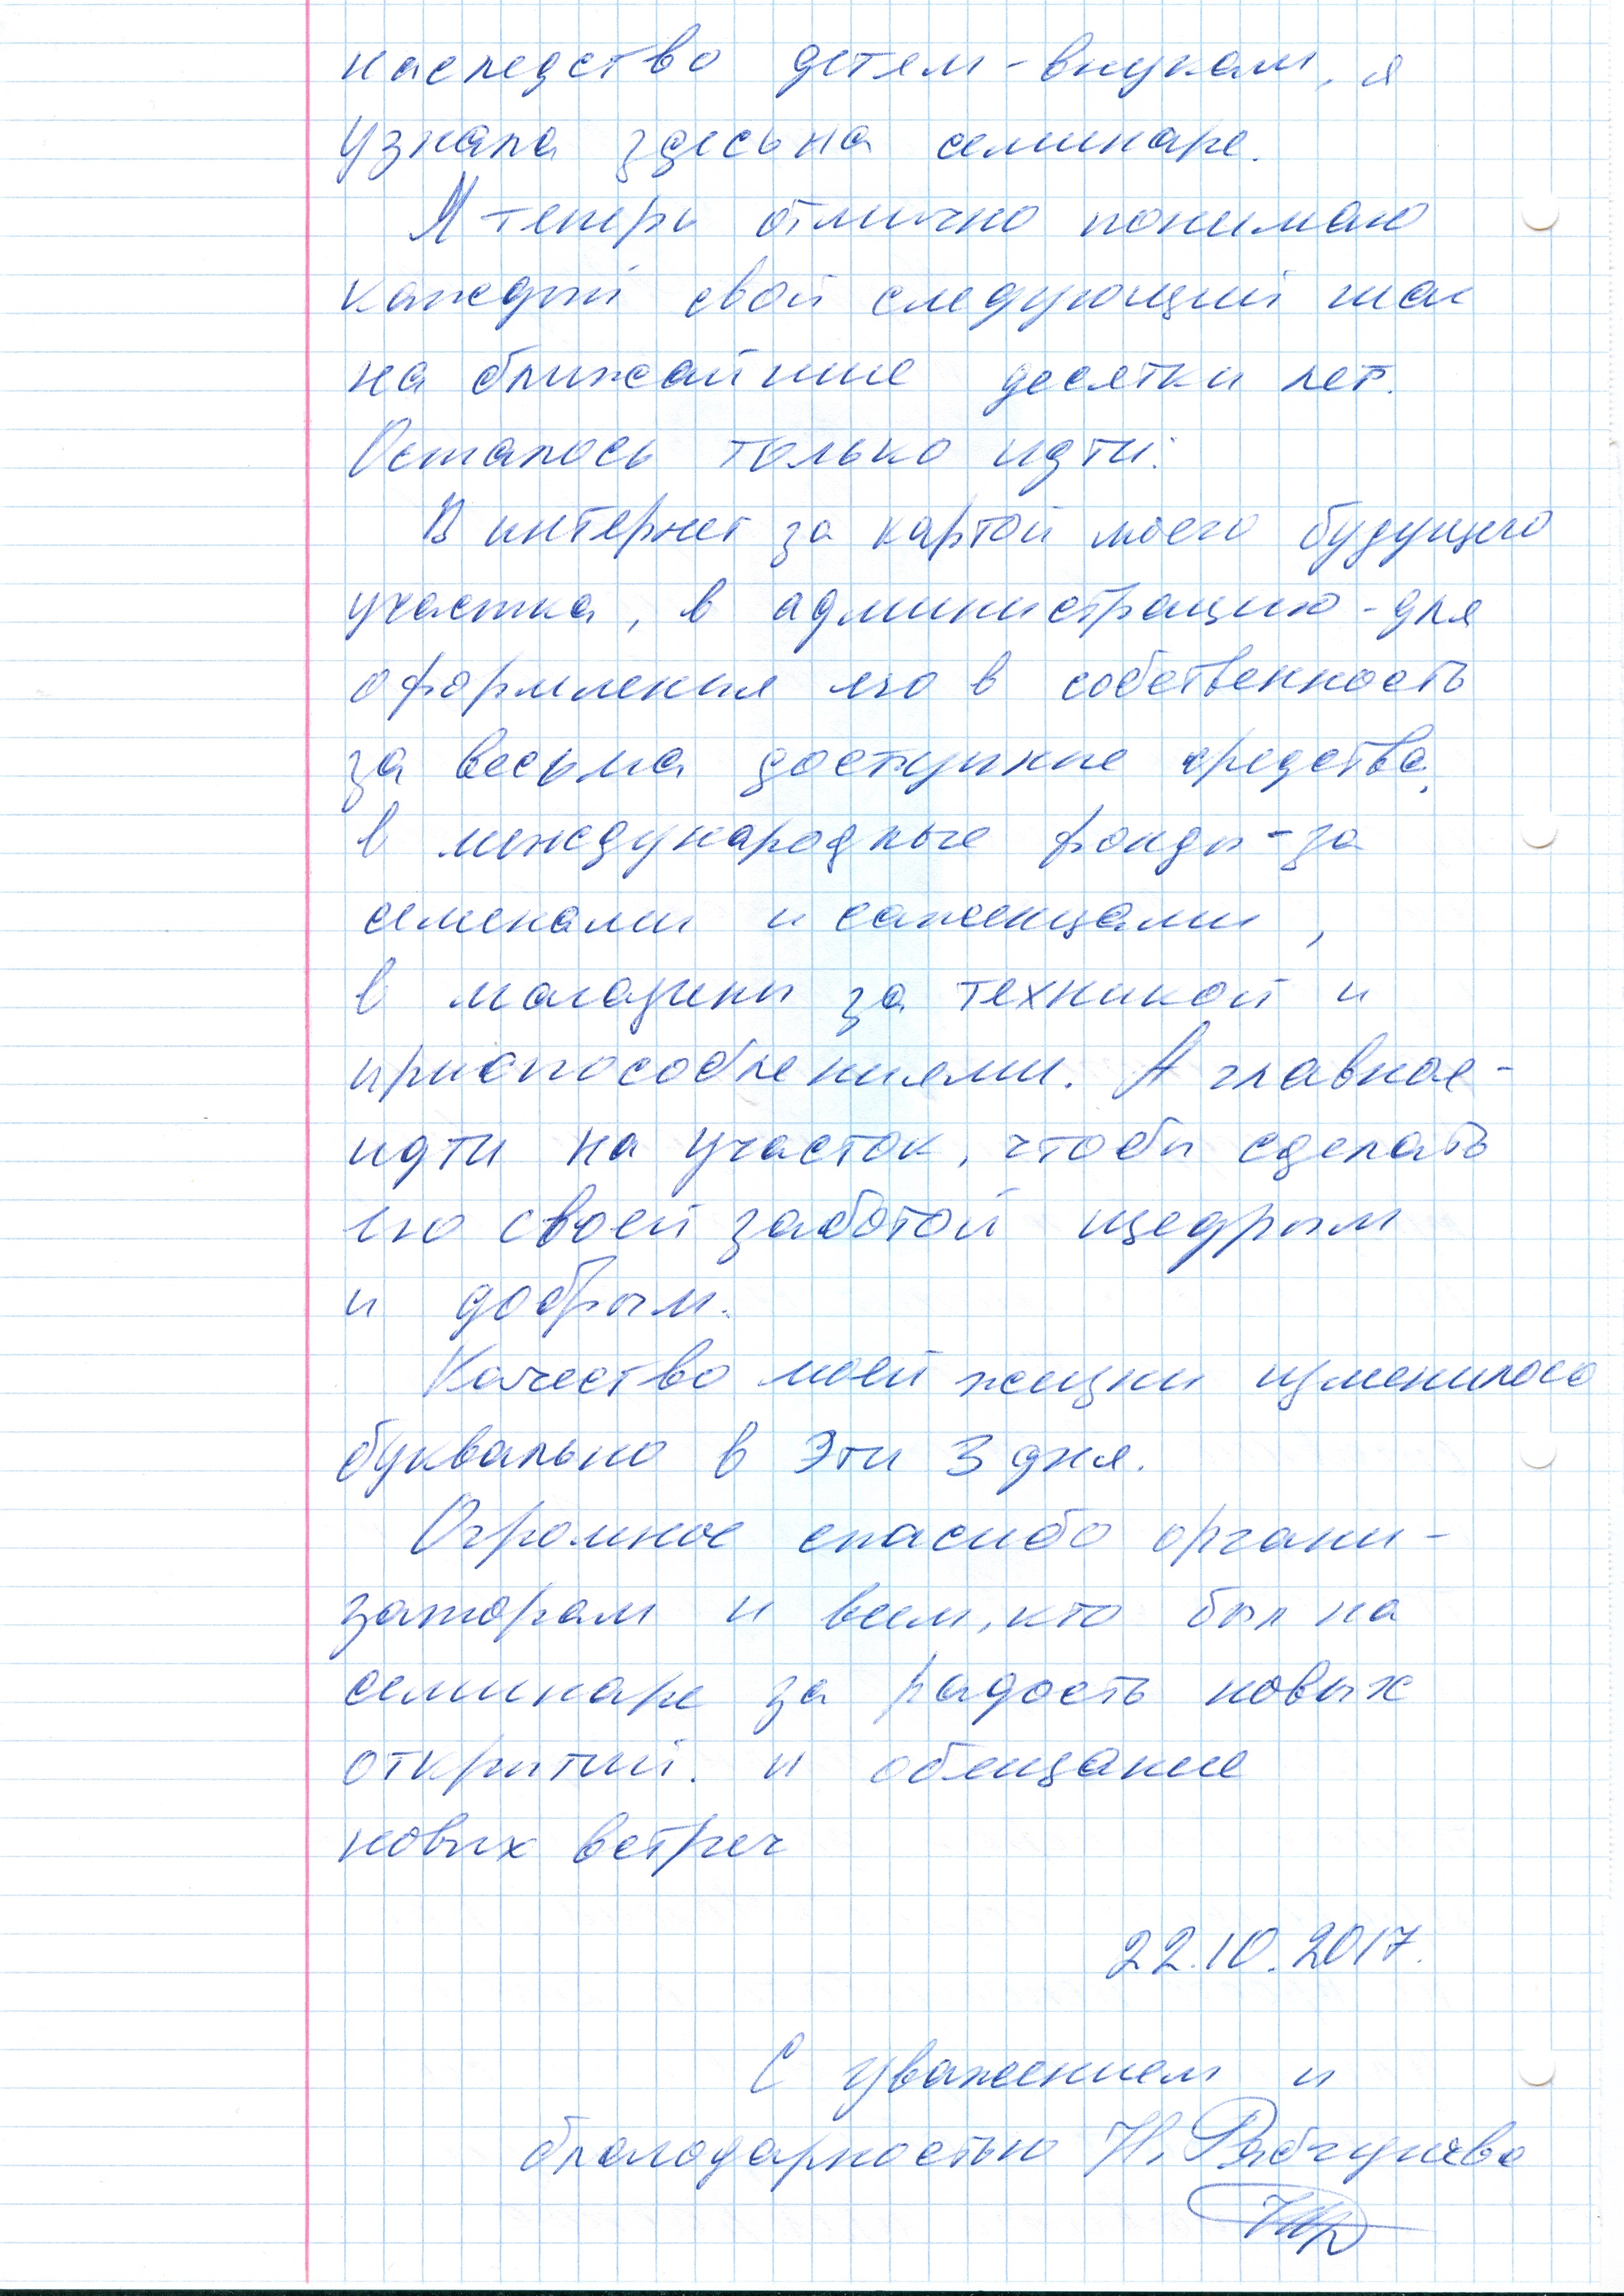 наследство детям-внукам, я
узнала здесь на семинаре.
Я теперь отлично понимаю
каждый свой следующий шаг
на ближайшие десятки лет.
Осталось только идти:
В интернет за картой моего будущего
участка, в администрацию - для
оформления его в собственность
за весьма доступные средства,
в международные фонды - за
семенами и саженцами,
в магазины за техникой и
приспособлениями. А главное -
идти на участок, чтобы сделать
его своей заботой щедрым
и добрым.
Качество моей жизни изменилось
буквально в эти 3 дня.
Огромное спасибо органи-
заторам и всем, кто был на
семинаре за радость новых
открытий. и обещание
новых встреч
22.10.2017.
С уважением и
благодарностью Н.